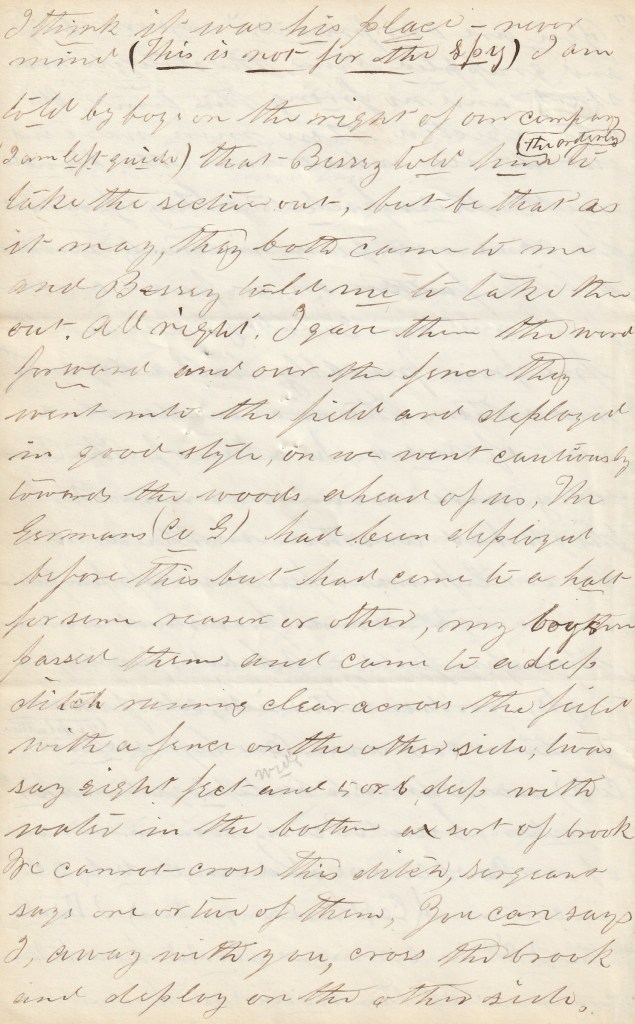 I think it was his place - never
mind (This is not for the spy) I am
told by boys on the right of our company
(I am left guide) that Bessey told him to
(the orderly)
take the section out, but be that as
it may, they both came to me
and Bessey told me to take them
out. All right. I gave them the word
forward and over the fence they
went into the field and deployed
in good style, on we went cautiously
towards the woods ahead of us. The
Germans (Co G) had been deployed
before this but had come to a halt
for some reason or other, my boys then
passed them and came to a deep
ditch running clear across the field
with a fence on the other side, twas
wide
say eight feet and 5 or 6 deep with
water in the bottom a sort of brook
We cannot cross this ditch, sergeant
says one or two of them, You can says
I, away with you, cross the brook
and deploy on the other side.